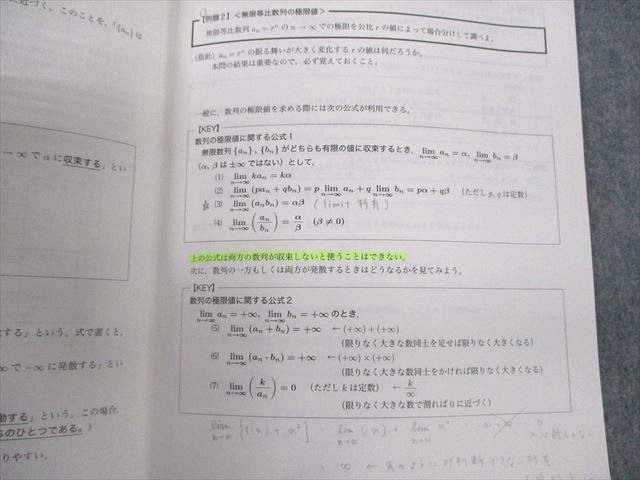 近づく。このことを，「{aₙ} は
→ ∞ で α に収束する」とい
する」という。式で書くと，
∞ で −∞ に発散する」とい
動する」という。この場合，
ちのひとつである。）
りやすい。
【例題2】＜無限等比数列の極限値＞
無限等比数列 aₙ = rⁿ の n → ∞ での極限を公比 r の値によって場合分けして調べよ。
（指針）aₙ = rⁿ の振る舞いが大きく変化する r の値は何だろうか。
本問の結果は重要なので，必ず覚えておくこと。
一般に，数列の極限値を求める際には次の公式が利用できる。
【KEY】
数列の極限値に関する公式1
無限数列 {aₙ}，{bₙ} がどちらも有限の値に収束するとき，lim n→∞ aₙ = α，lim n→∞ bₙ = β
（α, β は ±∞ ではない）として，
(1) lim n→∞ kaₙ = kα
(2) lim n→∞ (paₙ + qbₙ) = p lim n→∞ aₙ + q lim n→∞ bₙ = pα + qβ （ただし p, q は定数）
☆ (3) lim n→∞ (aₙbₙ) = αβ (limit 特有)
(4) lim n→∞ (aₙ/bₙ) = α/β (β ≠ 0)
上の公式は両方の数列が収束しないと使うことはできない。
次に，数列の一方もしくは両方が発散するときはどうなるかを見てみよう。
【KEY】
数列の極限値に関する公式2
lim n→∞ aₙ = +∞, lim n→∞ bₙ = +∞ のとき，
(5) lim n→∞ (aₙ + bₙ) = +∞ ← (+∞) + (+∞)
（限りなく大きな数同士を足せば限りなく大きくなる）
(6) lim n→∞ (aₙ · bₙ) = +∞ ← (+∞) × (+∞)
（限りなく大きな数同士をかければ限りなく大きくなる）
(7) lim n→∞ (k/aₙ) = 0 （ただし k は定数） ← k/∞
（限りなく大きな数で割れば 0 に近づく）
lim n→∞ {(-n) + n²} = lim n→∞ (-n) + lim n→∞ n²